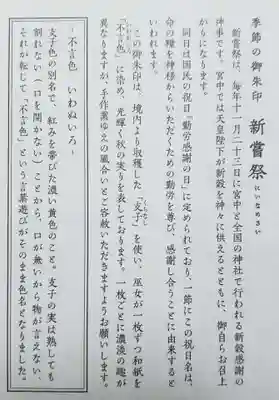 季節の御朱印　新嘗祭 にいなめさい
新嘗祭は、毎年十一月二十三日に宮中と全国の神社で行われる新穀感謝の
神事です。宮中では天皇陛下が新穀を神々に供えるとともに、御自らお召上
がりになります。
同日は国民の祝日「勤労感謝の日」に定められており、一節にこの祝日名は、
命の糧を神様からいただくための勤労を尊び、感謝し合うことに由来すると
いわれます。
この御朱印は、境内より収穫した「支子」くちなし を使い、巫女が一枚ずつ和紙を
「不言色」に染め、光輝く秋の実りを表しております。一枚ごとに濃淡の趣が
異なりますが、手作業ゆえの風合いとご容赦いただきますようお願いします。
－不言色　いわぬいろ－
支子色の別名で、紅みを帯びた濃い黄色のこと。支子の実は熟しても
割れない（口を開かない）ことから、口が無いから物が言えない、
それが転じて「不言色」という言葉遊びがそのまま色名となりました。